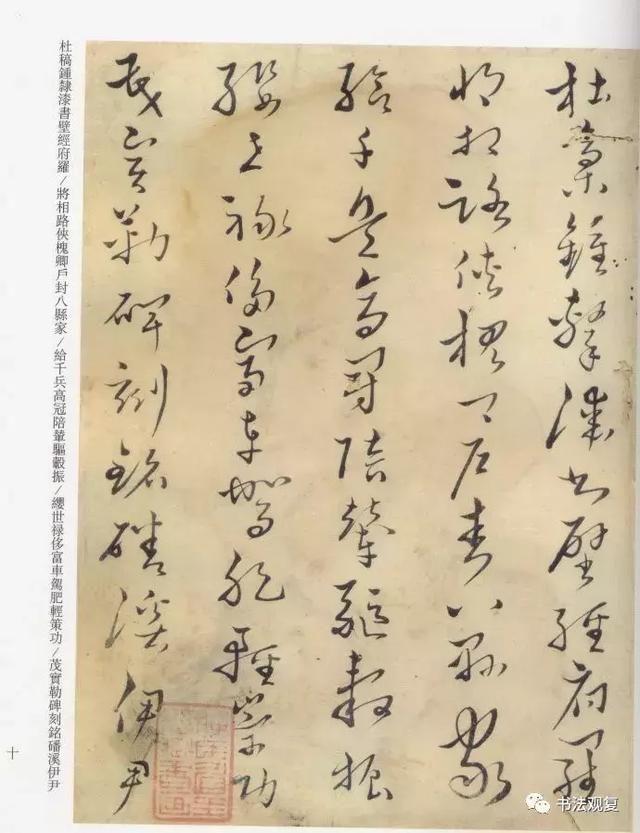 杜稾鍾隸漆書壁經府羅
將相路俠槐卿戶封八縣家
給千兵高冠陪輦驅轂振
纓世祿侈富車駕肥輕策功
茂實勒碑刻銘磻溪伊尹
杜稿鍾隸漆書壁經府羅/將相路俠槐卿戶封八縣家/給千兵高冠陪輦驅轂振/纓世禄侈富車駕肥輕策功/茂實勒碑刻銘磻溪伊尹
十
书法观复